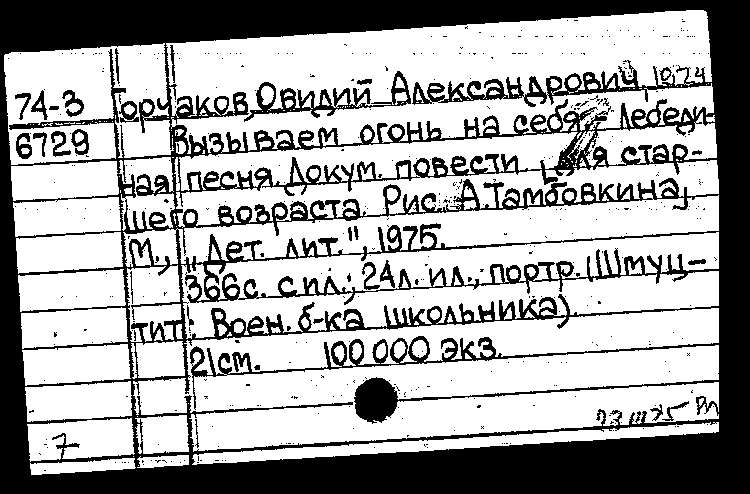 74-3 Горчаков, Овидий Александрович, 1924
6729 Вызываем огонь на себя. Лебеди-
ная песня. Докум. повести [для стар-
шего возраста. Рис. А. Тамбовкина]
М., "Дет. лит.", 1975.
366с. с ил.; 24л. ил.; портр. (Шмуц-
тит.: Воен. б-ка школьника).
21см. 100 000 экз.
7